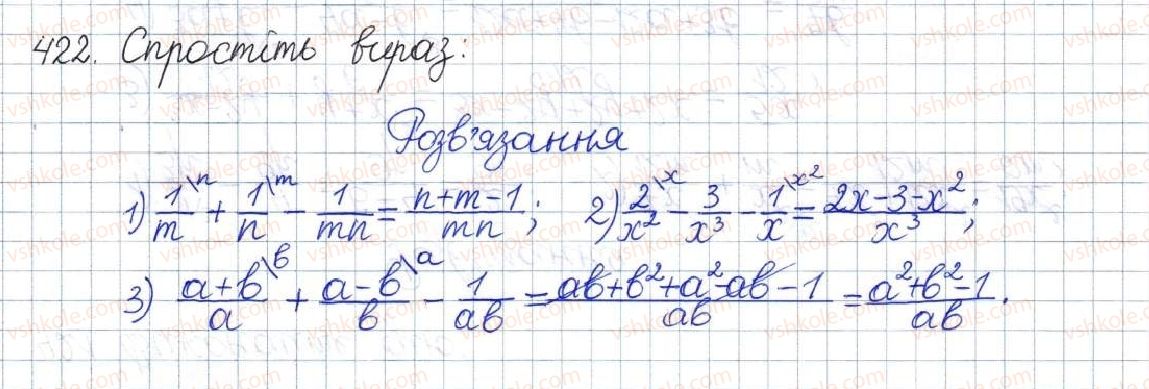 422. Спростіть вираз:
Розв'язання
1) 1/m \n + 1/n \m - 1/mn = (n+m-1)/mn; 2) 2/x² \x - 3/x³ - 1/x \x² = (2x-3-x²)/x³;
3) (a+b)/a \b + (a-b)/b \a - 1/ab = (ab+b²+a²-ab-1)/ab = (a²+b²-1)/ab.